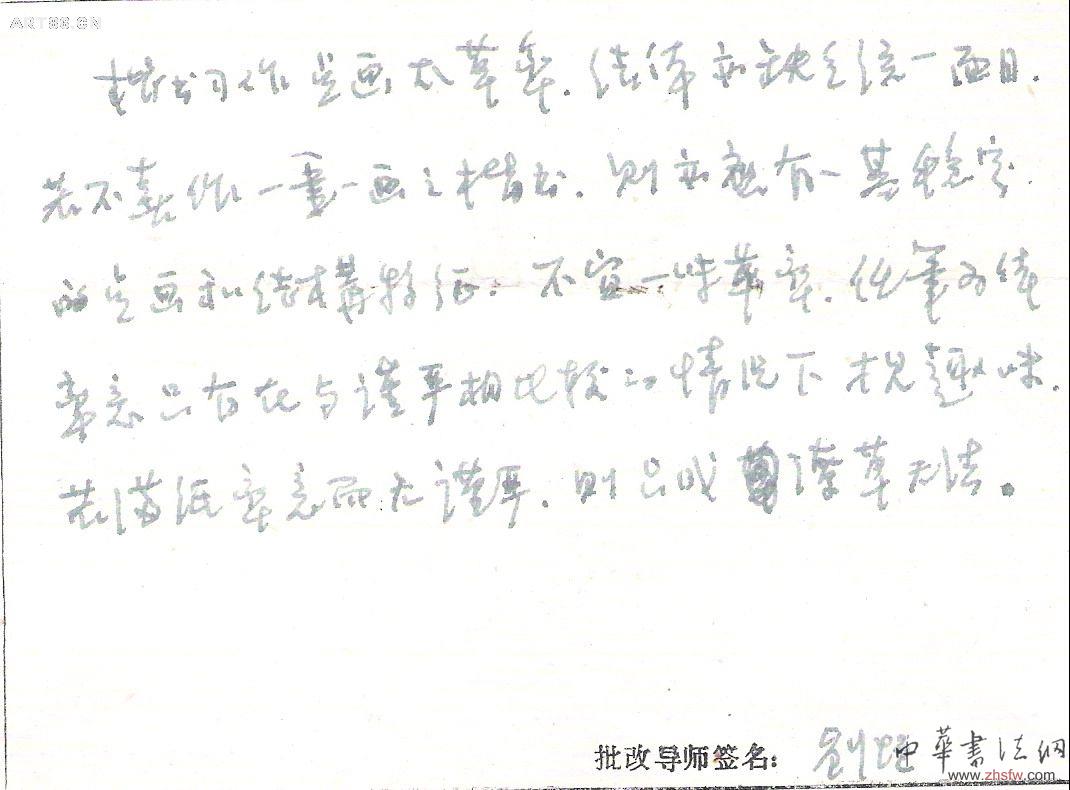 ART86.CN
楷书习作点画太草率.结体亦缺乏统一面目.
若不喜作一笔一画之楷书.则亦应有一基稳定
的点画和结构特征.不宜一味草率.任笔为体
率意只有在与谨严相比较的情况下才见趣味.
若满纸率意而无谨严.则只成潦草无法。
批改导师签名: 刘
中華書法网
www.zhsfw.com